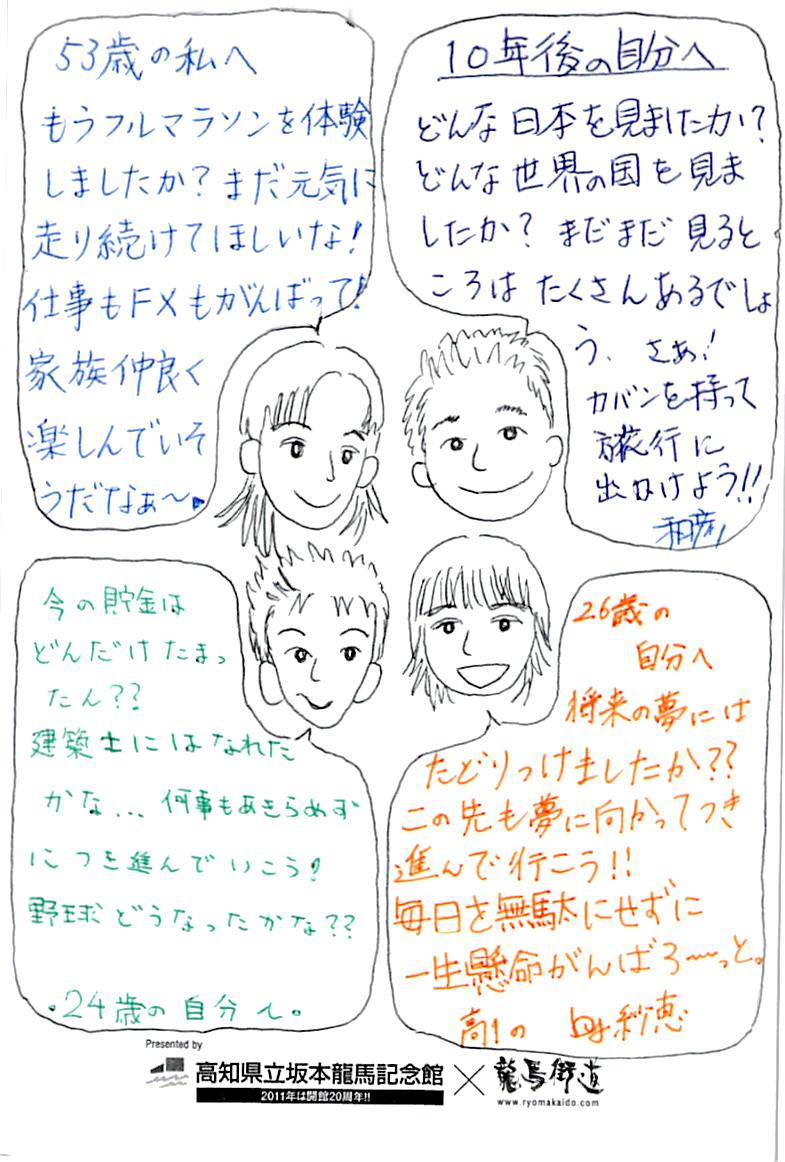 53歳の私へ
もうフルマラソンを体験
しましたか？まだ元気に
走り続けてほしいな！
仕事もFXもがんばって！
家族仲良く
楽しんでいそ
うだなぁ〜。
10年後の自分へ
どんな日本を見ましたか？
どんな世界の国を見ま
したか？まだまだ見ると
ころはたくさんあるでしょ
う、さぁ！
カバンを持って
旅行に
出かけよう!!
和彦
今の貯金は
どんだけたまっ
たん??
建築士にはなれた
かな... 何事もあきらめず
につき進んでいこう！
野球どうなったかな??
.24歳の自分へ。
26歳の
自分へ
将来の夢には
たどりつけましたか??
この先も夢に向かってつき
進んで行こう!!
毎日を無駄にせずに
一生懸命がんばろ〜っと。
高1の 紗恵
Presented by
高知県立坂本龍馬記念館
2011年は開館20周年!!
×
龍馬街道
www.ryomakaido.com